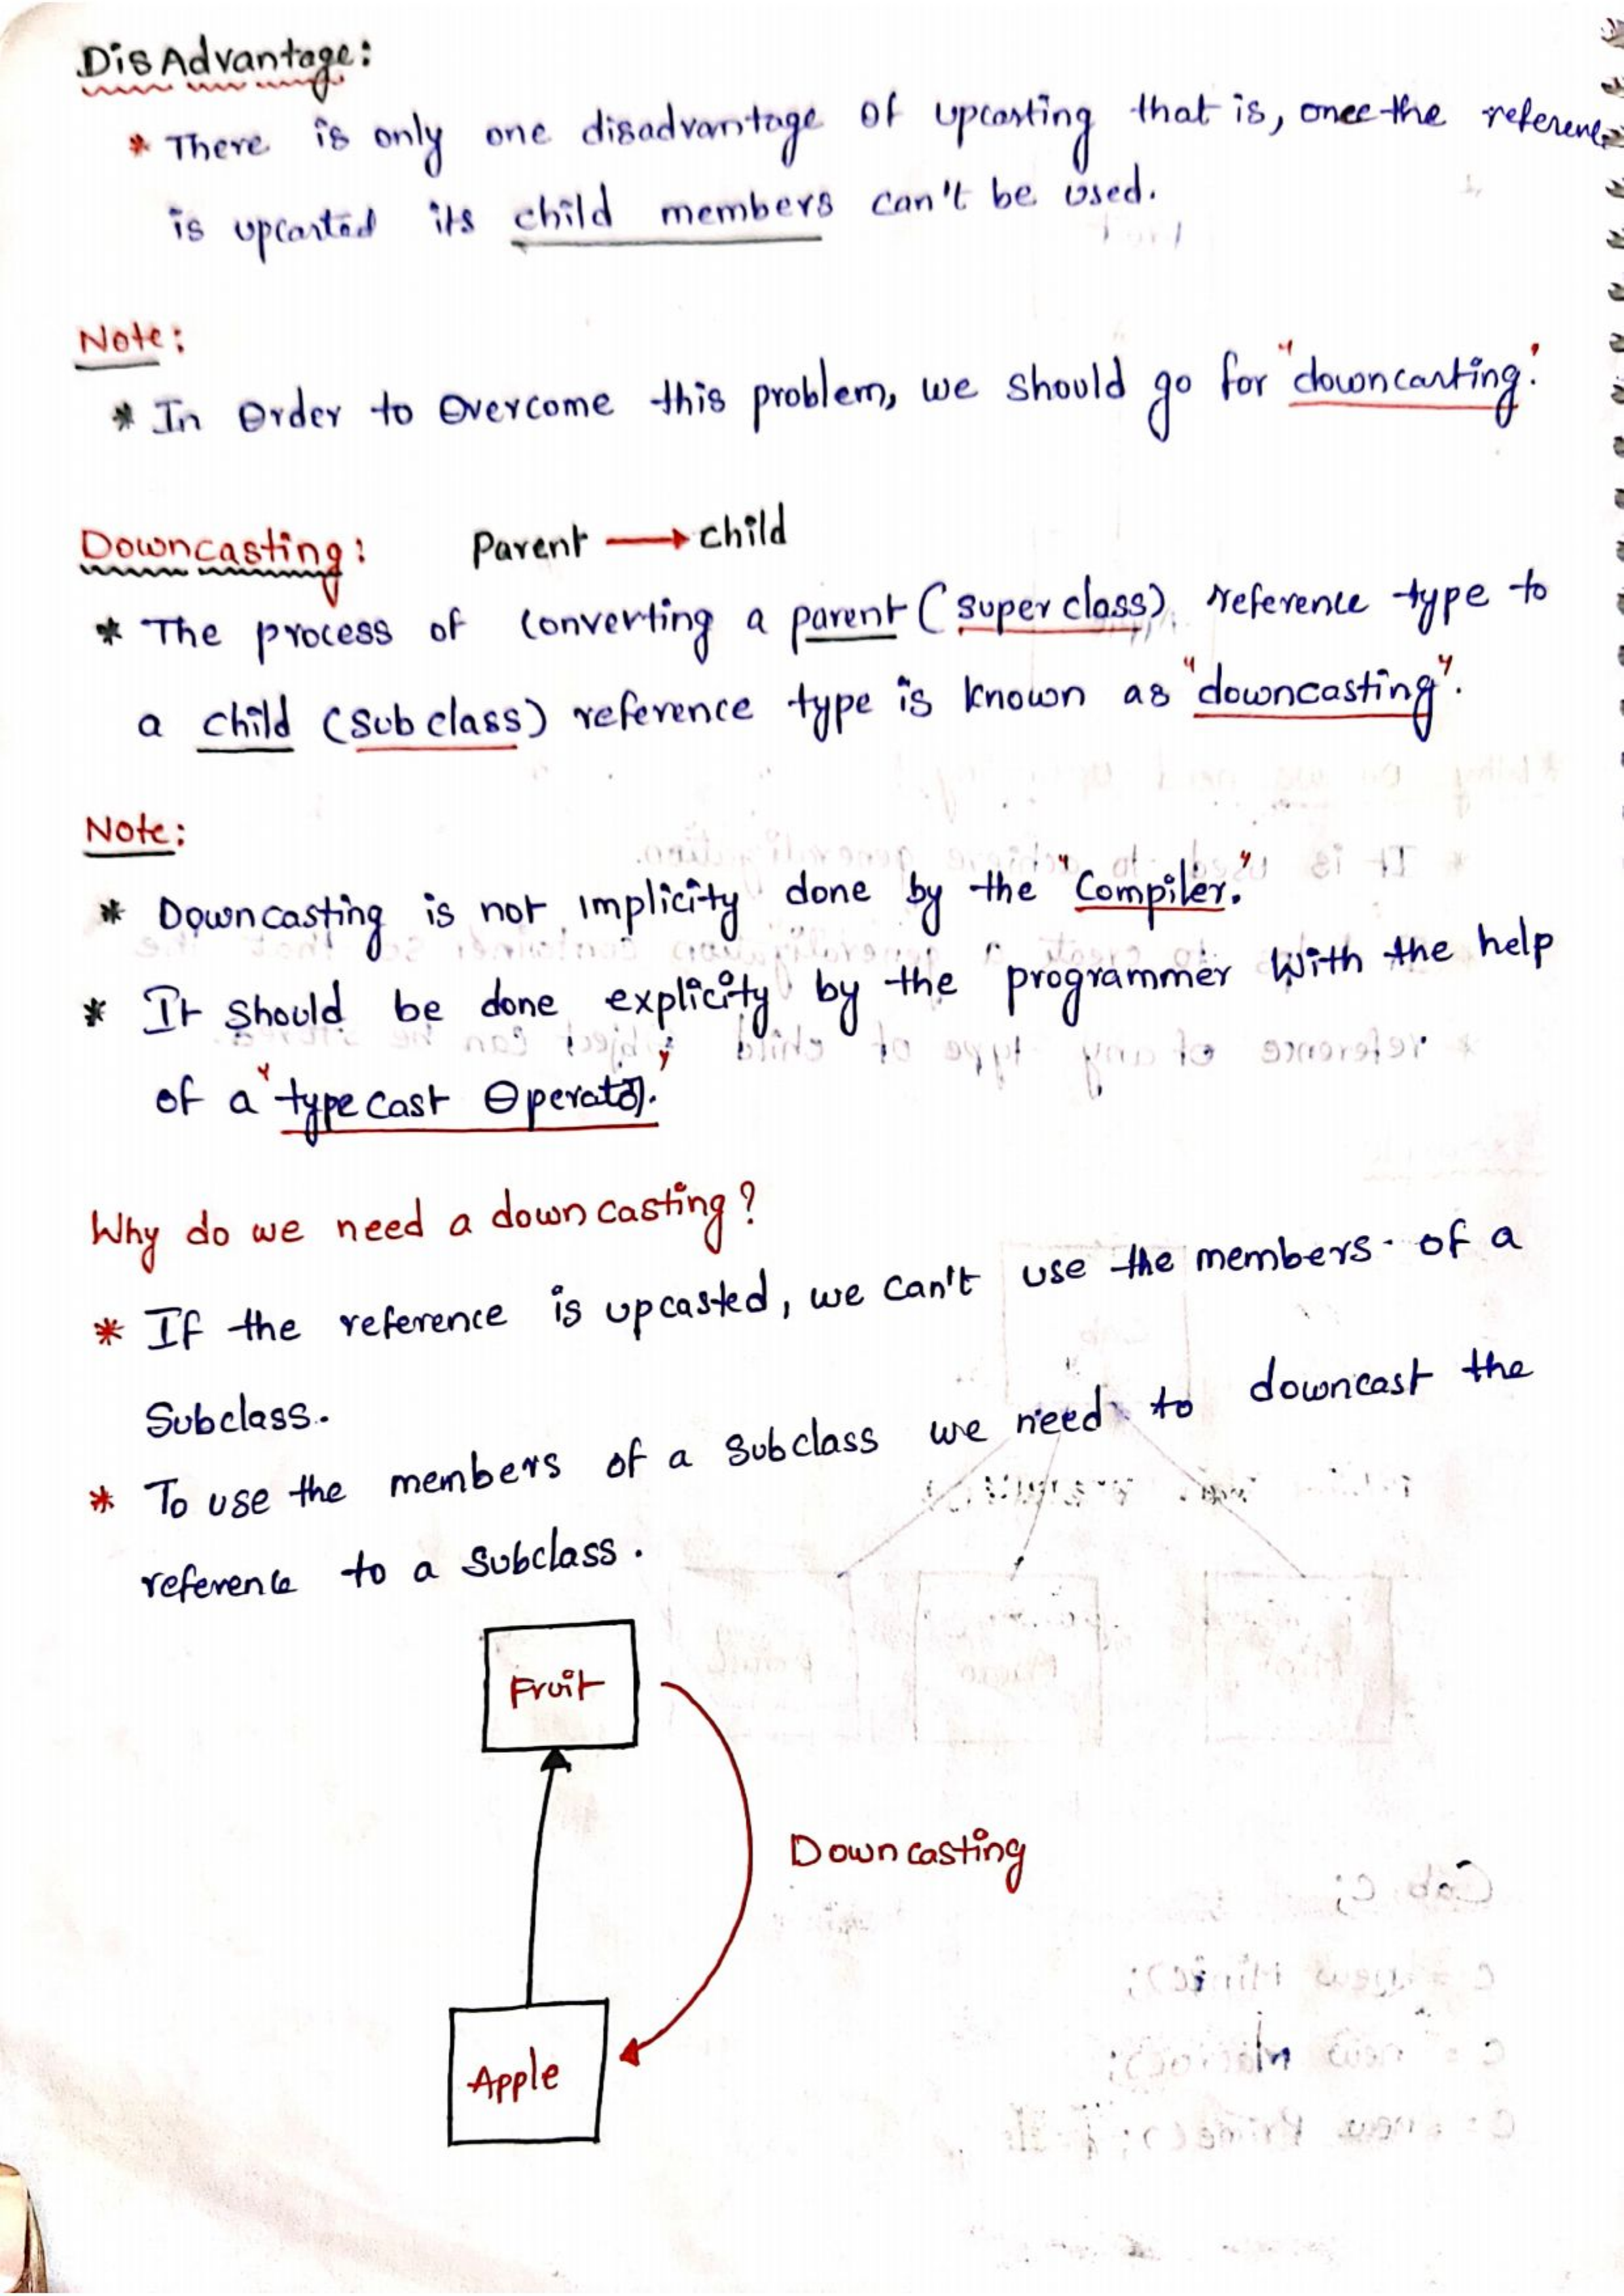 DisAdvantage:
* There is only one disadvantage of upcasting that is, once the reference
is upcasted its child members can't be used.
Note:
* In Order to Overcome this problem, we should go for "downcasting."
Downcasting: Parent → child
* The process of converting a parent (super class) reference type to
a child (sub class) reference type is known as "downcasting".
Note:
* Downcasting is not implicity done by the "Compiler."
* It should be done explicity by the programmer with the help
of a "type cast Operator."
Why do we need a down casting?
* If the reference is upcasted, we can't use the members of a
Subclass.
* To use the members of a subclass we need to downcast the
reference to a subclass.
Fruit
Down casting
Apple